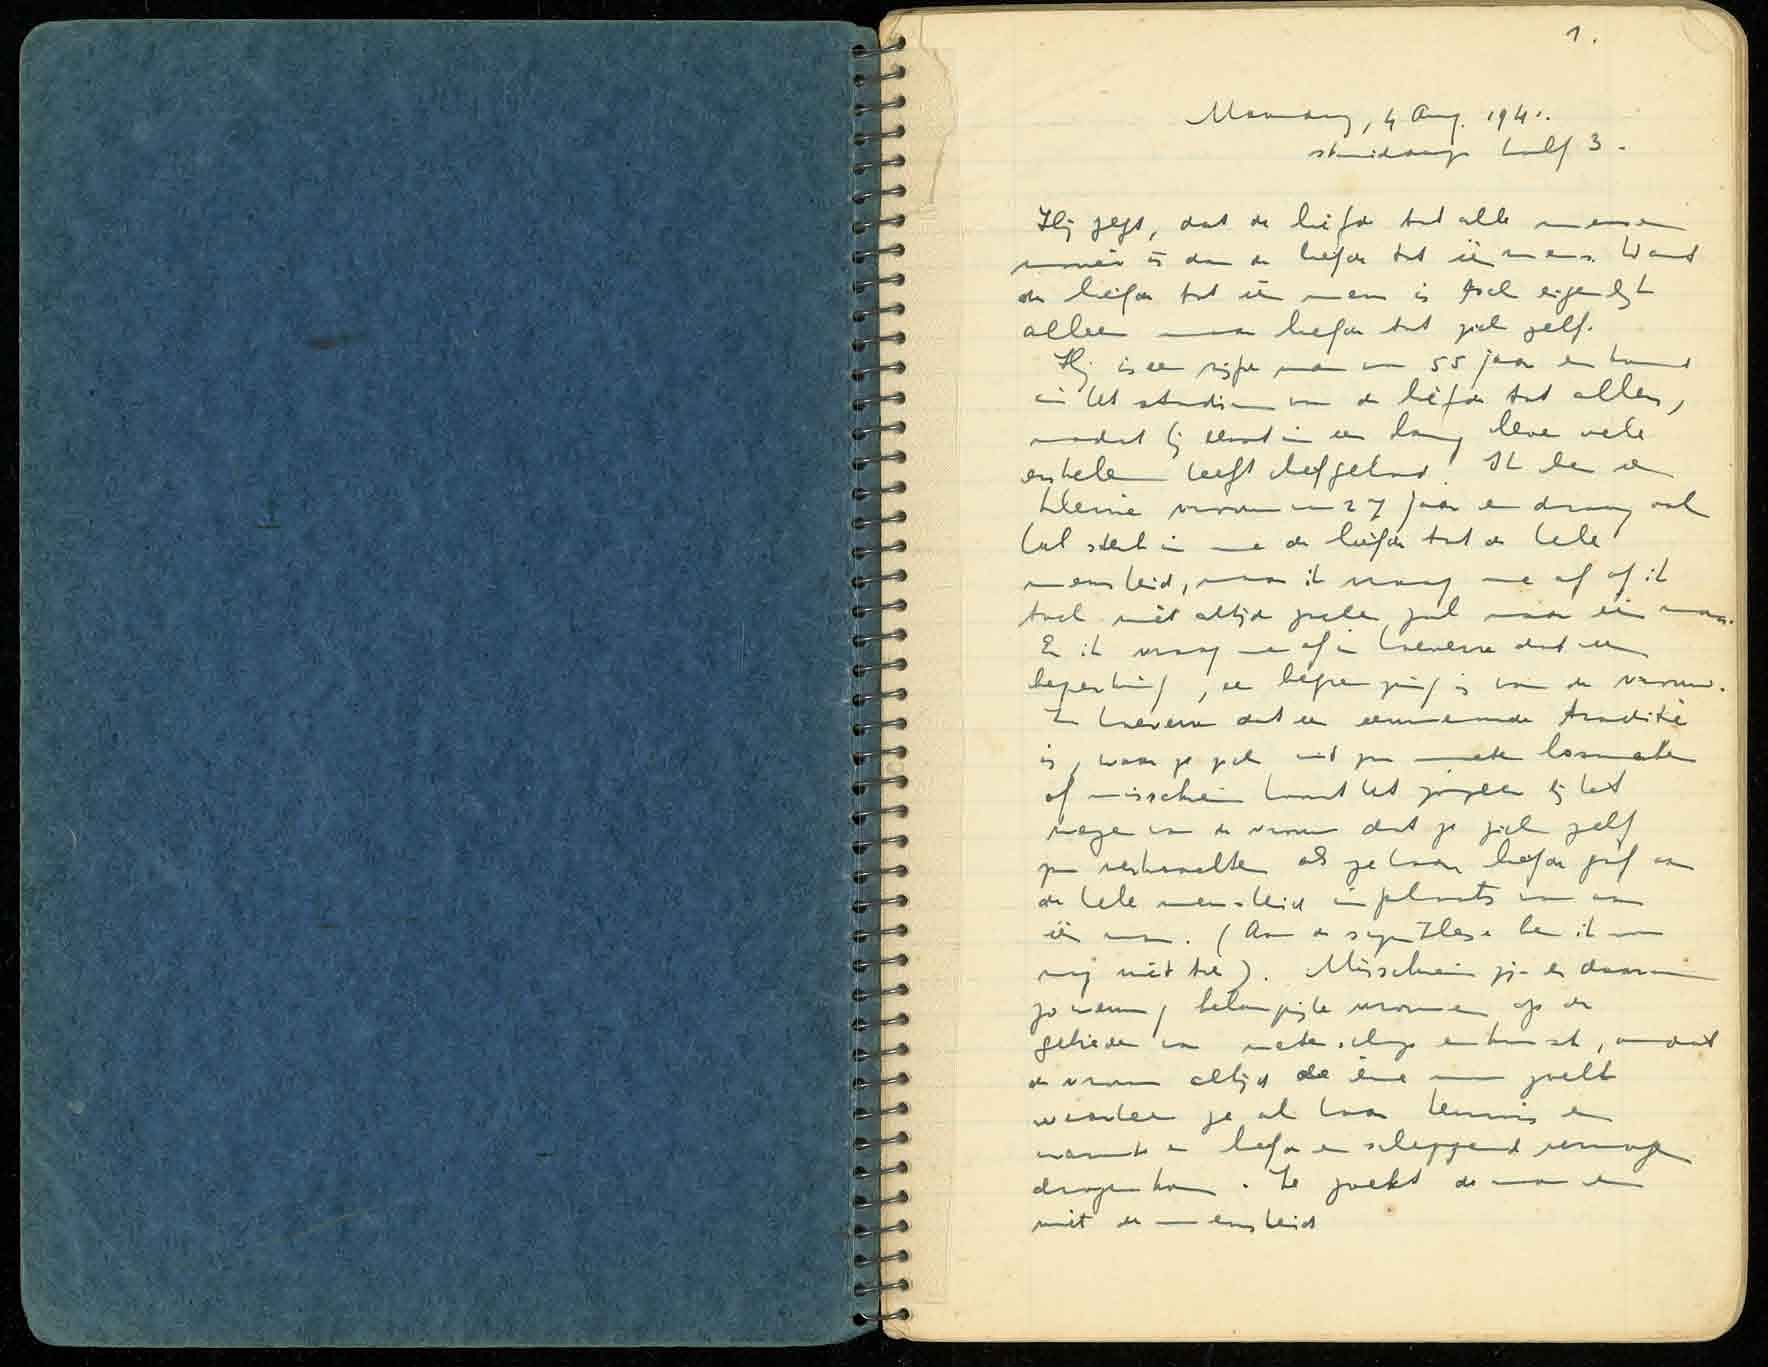 1.
Maandag, 4 Aug. 1941.
's middags half 3.
Hij zegt, dat de liefde tot alle mensen
mooier is dan de liefde tot één mens. Want
de liefde tot één mens is toch eigenlijk
alleen maar liefde tot zich zelf.
Hij is een rijpe man van 55 jaar en komt
in het stadium van de liefde tot allen,
nadat hij eerst in een lang leven vele
enkelen heeft liefgehad. Ik ben een
kleine vrouw van 27 jaar en draag ook
heel sterk in me de liefde tot de hele
mensheid, maar ik vraag me af of ik
toch niet altijd zoeken zal naar één man.
En ik vraag me af in hoeverre dat een
beperking, een begrenzing is van de vrouw.
In hoeverre dat een eeuwenoude traditie
is, waar ze zich uit zou moeten losmaken
of misschien hoort het zozeer bij het
wezen van de vrouw dat ze zich zelf
zou verkrachten als ze haar liefde gaf aan
de hele mensheid in plaats van aan
één man. (Aan de synthese ben ik nog
niet toe). Misschien zijn er daarom
zo weinig belangrijke vrouwen op de
gebieden van wetenschap en kunst, omdat
de vrouw altijd de ene man zoekt
waarheen ze al haar kennis en
warmte en liefde en scheppend vermogen
dragen kan. Ze zoekt de man en
niet de mensheid